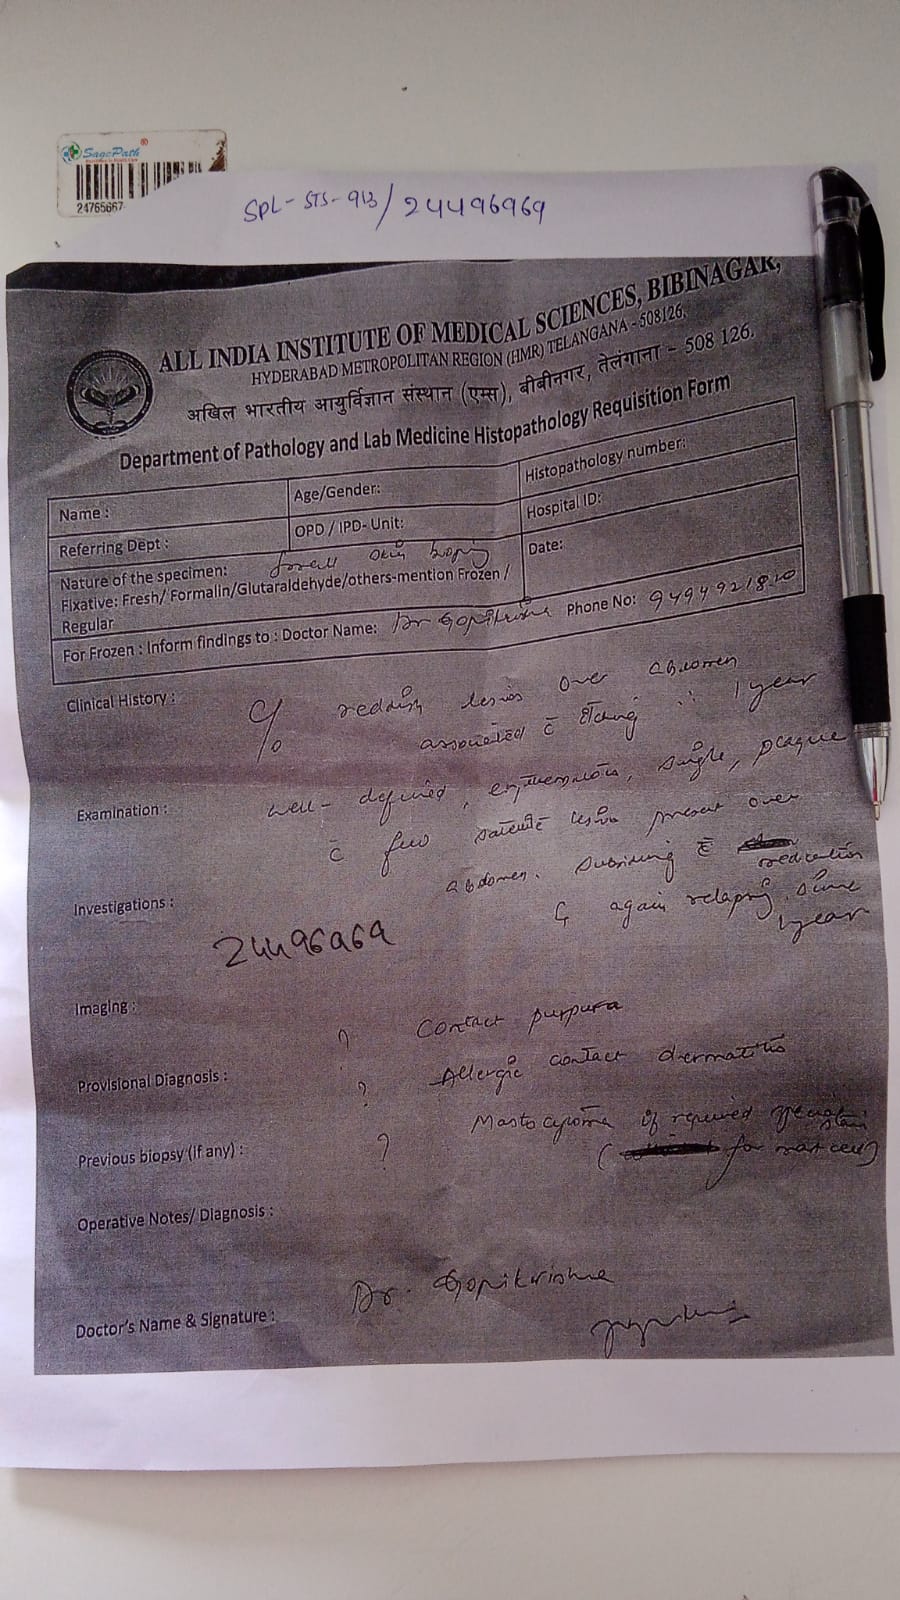 SagePath®
24765667
SPL-STS-913/24496969
ALL INDIA INSTITUTE OF MEDICAL SCIENCES, BIBINAGAR,
HYDERABAD METROPOLITAN REGION (HMR) TELANGANA - 508126.
अखिल भारतीय आयुर्विज्ञान संस्थान (एम्स), बीबीनगर, तेलंगाना - 508 126.
Department of Pathology and Lab Medicine Histopathology Requisition Form
Name :
Age/Gender:
Histopathology number:
Referring Dept :
OPD / IPD- Unit:
Hospital ID:
Nature of the specimen: skin biopsy
Date:
Fixative: Fresh/ Formalin/Glutaraldehyde/others-mention Frozen /
Regular
For Frozen : Inform findings to : Doctor Name: Dr Gopikrishna Phone No: 9494921820
Clinical History : C/o reddish lesions over abdomen
associated c̄ itching 1 year
Examination : well-defined, erythematous, single, plaque
c̄ few satellite lesions present over
abdomen. subsiding c̄ medication
Investigations :
& again relapsing since
1 year
24496969
Imaging :
? Contact purpura
Provisional Diagnosis :
? Allergic contact dermatitis
? Mastocytoma if required special stain
Previous biopsy (if any) :
( for mast cell)
Operative Notes/ Diagnosis :
Dr. Gopikrishna
Doctor's Name & Signature :